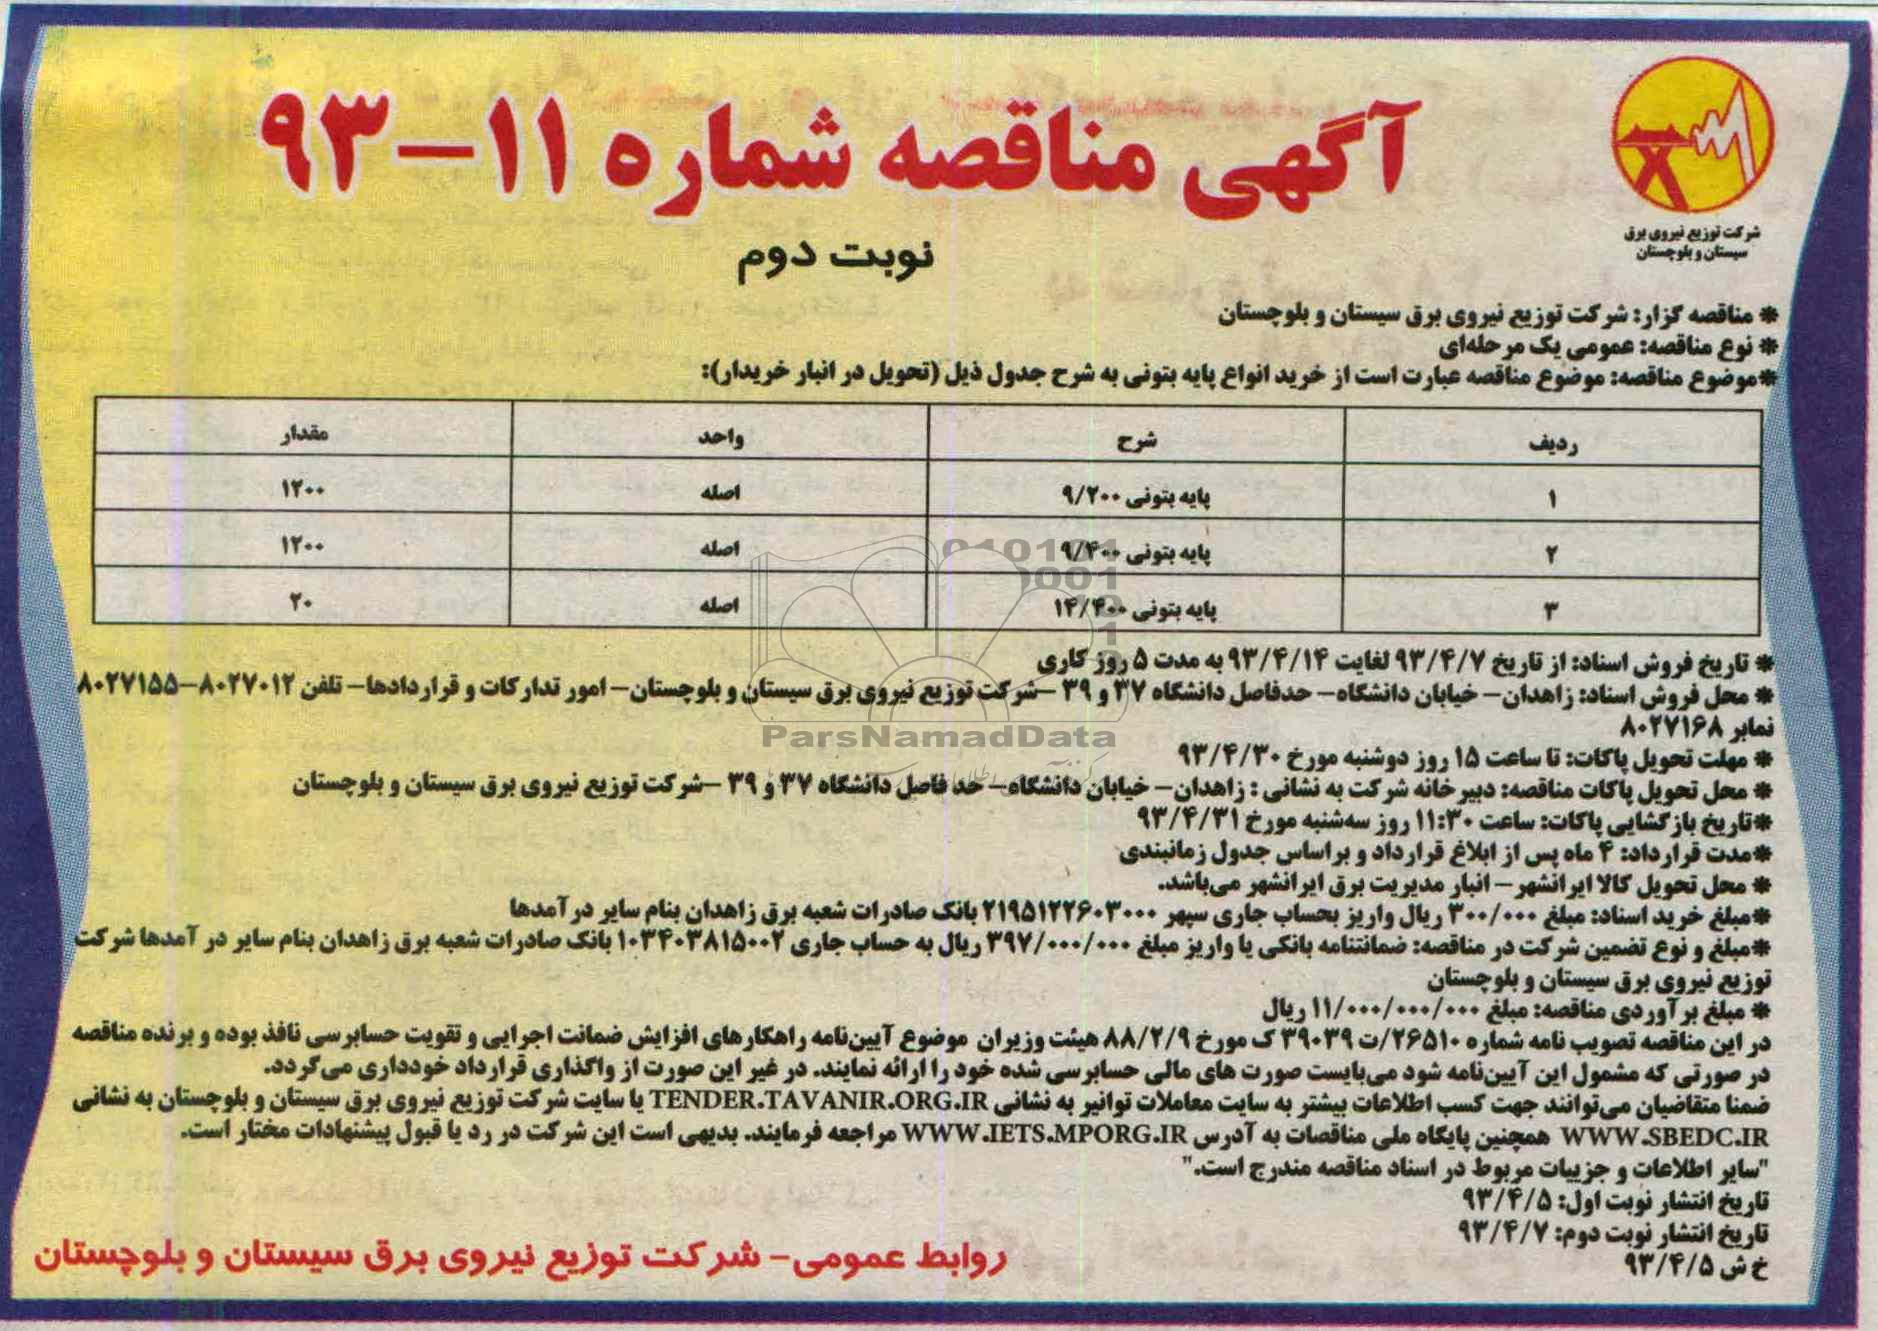 آگهی مناقصه شماره ۱۱-۹۳
نوبت دوم
شرکت توزیع نیروی برق
سیستان و بلوچستان
* مناقصه گزار: شرکت توزیع نیروی برق سیستان و بلوچستان
* نوع مناقصه: عمومی یک مرحله‌ای
*موضوع مناقصه: موضوع مناقصه عبارت است از خرید انواع پایه بتونی به شرح جدول ذیل (تحویل در انبار خریدار):
ردیف شرح واحد مقدار
۱ پایه بتونی ۹/۲۰۰ اصله ۱۲۰۰
۲ پایه بتونی ۹/۴۰۰ اصله ۱۲۰۰
۳ پایه بتونی ۱۴/۴۰۰ اصله ۲۰
* تاریخ فروش اسناد: از تاریخ ۹۳/۴/۷ لغایت ۹۳/۴/۱۴ به مدت ۵ روز کاری
* محل فروش اسناد: زاهدان- خیابان دانشگاه- حدفاصل دانشگاه ۳۷ و ۳۹ -شرکت توزیع نیروی برق سیستان و بلوچستان- امور تدارکات و قراردادها- تلفن ۸۰۲۷۰۱۲-۸۰۲۷۱۵۵
نمابر ۸۰۲۷۱۶۸
ParsNamadData
* مهلت تحویل پاکات: تا ساعت ۱۵ روز دوشنبه مورخ ۹۳/۴/۳۰
* محل تحویل پاکات مناقصه: دبیرخانه شرکت به نشانی : زاهدان- خیابان دانشگاه- حد فاصل دانشگاه ۳۷ و ۳۹ -شرکت توزیع نیروی برق سیستان و بلوچستان
*تاریخ بازگشایی پاکات: ساعت ۱۱:۳۰ روز سه‌شنبه مورخ ۹۳/۴/۳۱
*مدت قرارداد: ۴ ماه پس از ابلاغ قرارداد و براساس جدول زمانبندی
* محل تحویل کالا ایرانشهر- انبار مدیریت برق ایرانشهر می‌باشد.
*مبلغ خرید اسناد: مبلغ ۳۰۰/۰۰۰ ریال واریز بحساب جاری سپهر ۲۱۹۵۱۲۲۶۰۳۰۰۰ بانک صادرات شعبه برق زاهدان بنام سایر درآمدها
*مبلغ و نوع تضمین شرکت در مناقصه: ضمانتنامه بانکی یا واریز مبلغ ۳۹۷/۰۰۰/۰۰۰ ریال به حساب جاری ۱۰۳۴۰۳۸۱۵۰۰۲ بانک صادرات شعبه برق زاهدان بنام سایر در آمدها شرکت
توزیع نیروی برق سیستان و بلوچستان
* مبلغ برآوردی مناقصه: مبلغ ۱۱/۰۰۰/۰۰۰/۰۰۰ ریال
در این مناقصه تصویب نامه شماره ۲۶۵۱۰/ت ۳۹۰۳۹ ک مورخ ۸۸/۲/۹ هیئت وزیران موضوع آیین‌نامه راهکارهای افزایش ضمانت اجرایی و تقویت حسابرسی نافذ بوده و برنده مناقصه
در صورتی که مشمول این آیین‌نامه شود می‌بایست صورت های مالی حسابرسی شده خود را ارائه نمایند. در غیر این صورت از واگذاری قرارداد خودداری می‌گردد.
ضمنا متقاضیان می‌توانند جهت کسب اطلاعات بیشتر به سایت معاملات توانیر به نشانی TENDER.TAVANIR.ORG.IR یا سایت شرکت توزیع نیروی برق سیستان و بلوچستان به نشانی
WWW.SBEDC.IR همچنین پایگاه ملی مناقصات به آدرس WWW.IETS.MPORG.IR مراجعه فرمایند. بدیهی است این شرکت در رد یا قبول پیشنهادات مختار است.
"سایر اطلاعات و جزییات مربوط در اسناد مناقصه مندرج است."
تاریخ انتشار نوبت اول: ۹۳/۴/۵
تاریخ انتشار نوبت دوم: ۹۳/۴/۷
خ ش ۹۳/۴/۵
روابط عمومی- شرکت توزیع نیروی برق سیستان و بلوچستان